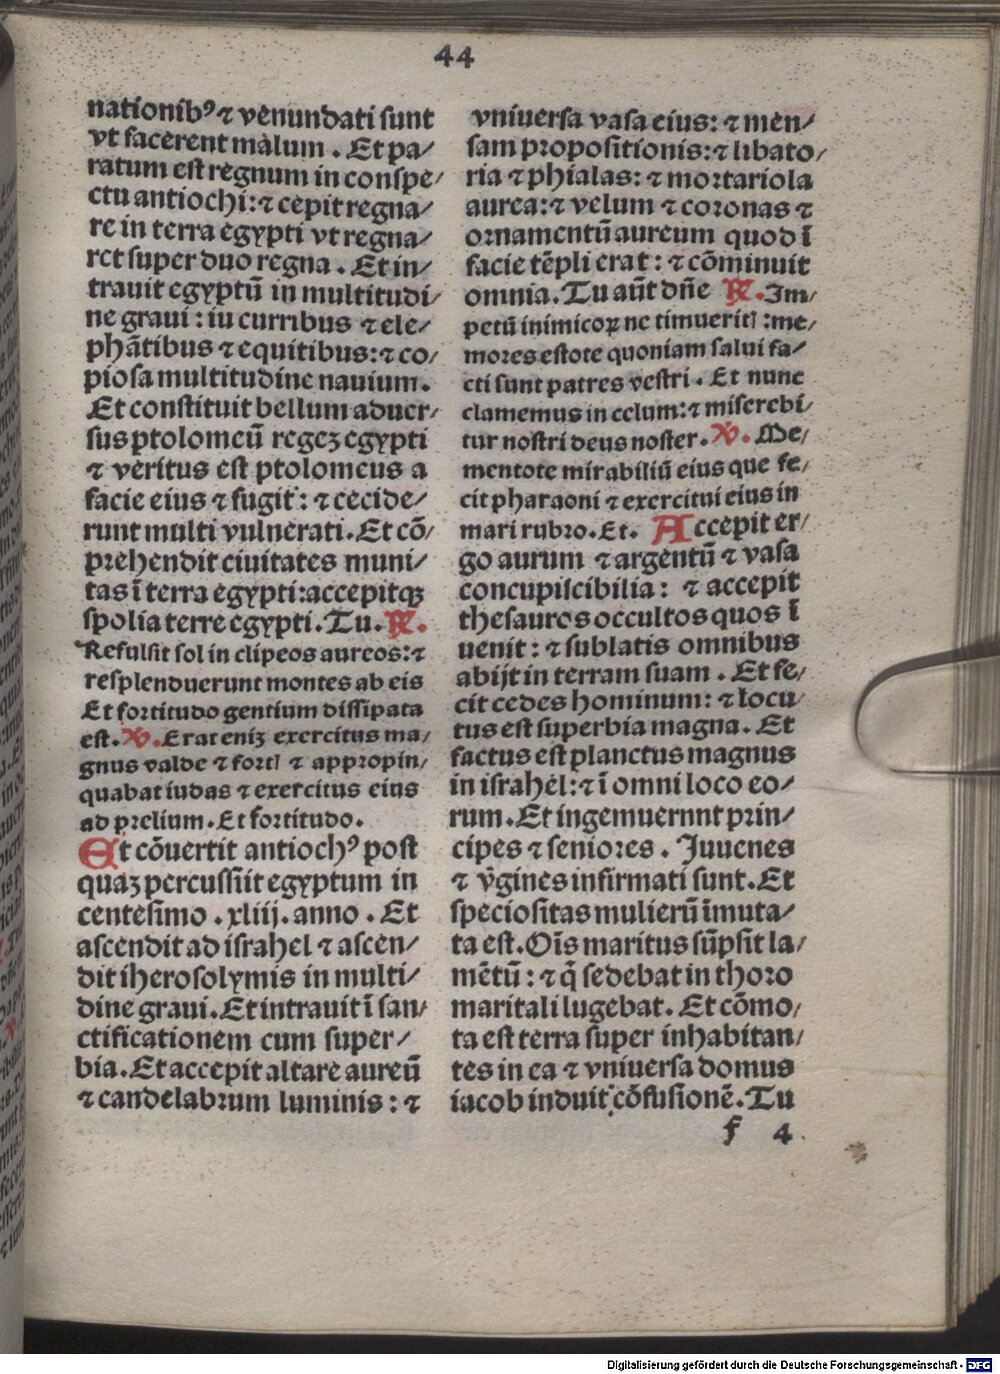 44
nationibꝰ ⁊ venundati sunt
vt facerent malum . Et pa⸗
ratum est regnum in conspe⸗
ctu antiochi: ⁊ cepit regna⸗
re in terra egypti vt regna⸗
ret super duo regna . Et in⸗
trauit egyptū in multitudi⸗
ne graui : iu curribus ⁊ ele⸗
phātibus ⁊ equitibus: ⁊ co⸗
piosa multitudine nauium.
Et constituit bellum aduer⸗
sus ptolomeū regeꝫ egypti
⁊ veritus est ptolomeus a
facie eius ⁊ fugit : ⁊ cecide⸗
runt multi vulnerati. Et cō⸗
prehendit ciuitates muni⸗
tas ī terra egypti: accepitqꝫ
spolia terre egypti. Tu. ℟.
Refulsit sol in clipeos aureos: ⁊
resplenduerunt montes ab eis
Et fortitudo gentium dissipata
est. ℣. Erat eniꝫ exercitus ma⸗
gnus valde ⁊ fortꝭ ⁊ appropin⸗
quabat iudas ⁊ exercitus eius
ad prelium. Et fortitudo.
Et cōuertit antiochꝰ post
quaꝫ percussiit egyptum in
centesimo . xliij. anno . Et
ascendit ad israhel ⁊ ascen⸗
dit iherosolymis in multi⸗
dine graui. Et intrauit ī san⸗
ctificationem cum super⸗
bia. Et accepit altare aureū
⁊ candelabrum luminis : ⁊
vniuersa vasa eius: ⁊ men⸗
sam propositionis: ⁊ libato⸗
ria ⁊ phialas: ⁊ mortariola
aurea: ⁊ velum ⁊ coronas ⁊
ornamentū aureum quod ī
facie tēpli erat : ⁊ cōminuit
omnia. Tu aūt dn̄e ℟. Im⸗
petū inimicoꝝ ne timueritꝭ : me⸗
mores estote quoniam salui fa⸗
cti sunt patres vestri . Et nunc
clamemus in celum: ⁊ miserebi⸗
tur nostri deus noster. ℣. Me⸗
mentote mirabiliū eius que fe⸗
cit pharaoni ⁊ exercitui eius in
mari rubro. Et. Accepit er⸗
go aurum ⁊ argentū ⁊ vasa
concupiscibilia : ⁊ accepit
thesauros occultos quos ī
uenit : ⁊ sublatis omnibus
abijt in terram suam . Et fe⸗
cit cedes hominum: ⁊ locu⸗
tus est superbia magna. Et
factus est planctus magnus
in israhel: ⁊ ī omni loco eo⸗
rum. Et ingemuernnt prin⸗
cipes ⁊ seniores . Juuenes
⁊ v̄gines infirmati sunt. Et
speciositas mulierū īmuta⸗
ta est. Oīs maritus sūpsit la⸗
mētū : ⁊ q̄ sedebat in thoro
maritali lugebat. Et cōmo⸗
ta est terra super inhabitan⸗
tes in ea ⁊ vniuersa domus
iacob induit cōfusionē. Tu
f 4
Digitalisierung gefördert durch die Deutsche Forschungsgemeinschaft - DFG